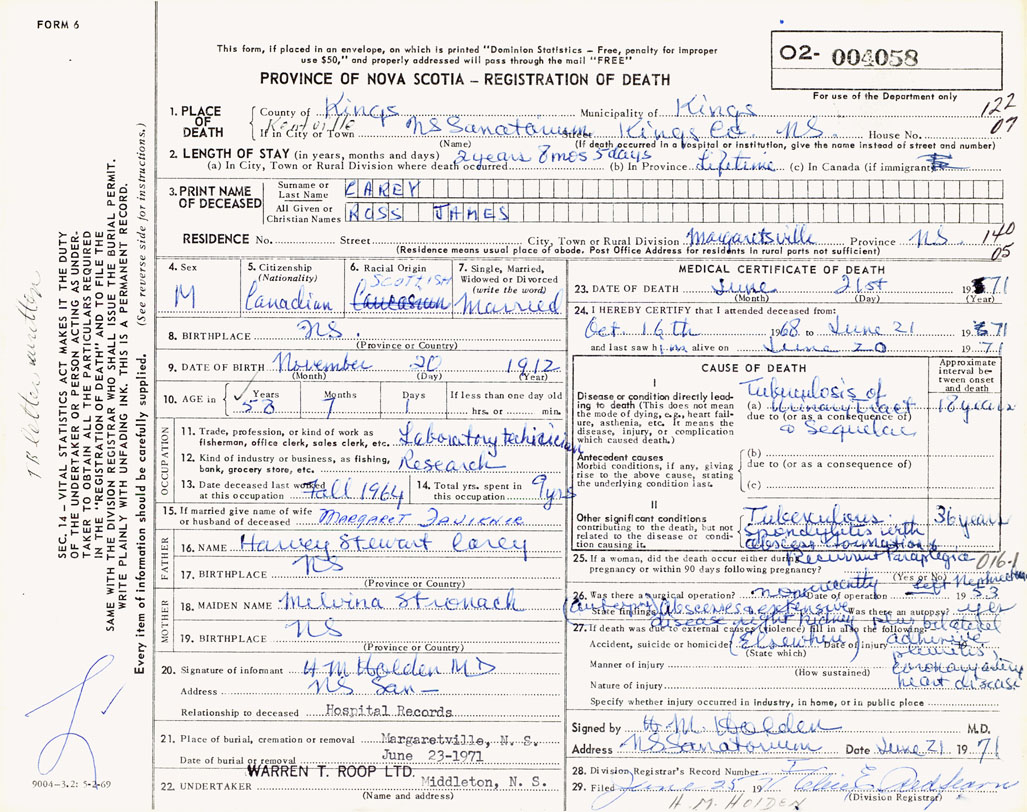 FORM 6
This form, if placed in an envelope, on which is printed "Dominion Statistics – Free, penalty for improper
use $50," and properly addressed will pass through the mail "FREE"
PROVINCE OF NOVA SCOTIA – REGISTRATION OF DEATH
O2- 004058
For use of the Department only
122
07
1. PLACE OF DEATH
County of Kings Municipality of Kings
Kentville
If in City or Town NS Sanatorium Street Kings Co. NS. House No.
(Name) (If death occurred in a hospital or institution, give the name instead of street and number)
2. LENGTH OF STAY (in years, months and days) 2 years 8 mos 5 days
(a) In City, Town or Rural Division where death occurred (b) In Province Lifetime (c) In Canada (if immigrant)
3. PRINT NAME OF DECEASED
Surname or Last Name CAREY
All Given or Christian Names ROSS JAMES
RESIDENCE No. Street City, Town or Rural Division Margaretsville Province NS.
(Residence means usual place of abode. Post Office Address for residents in rural parts not sufficient)
140
05
4. Sex M
5. Citizenship (Nationality) Canadian
6. Racial Origin SCOTTISH Caucasian
7. Single, Married, Widowed or Divorced (write the word) Married
8. BIRTHPLACE NS.
(Province or Country)
9. DATE OF BIRTH November 20 1912
(Month) (Day) (Year)
10. AGE in Years 58 Months 7 Days 1 If less than one day old
hrs. or min.
OCCUPATION
11. Trade, profession, or kind of work as fisherman, office clerk, sales clerk, etc. Laboratory technician
12. Kind of industry or business, as fishing, bank, grocery store, etc. Research
13. Date deceased last worked at this occupation Fall 1964
14. Total yrs. spent in this occupation 9 yrs
15. If married give name of wife or husband of deceased MARGARET FAULKNER
FATHER
16. NAME Harvey Stewart Carey
17. BIRTHPLACE NS
(Province or Country)
MOTHER
18. MAIDEN NAME Melvina Stronach
19. BIRTHPLACE NS
(Province or Country)
20. Signature of informant H M Holden MD
Address NS San –
Relationship to deceased Hospital Records
21. Place of burial, cremation or removal Margaretville, N. S.
Date of burial or removal June 23-1971
WARREN T. ROOP LTD.
22. UNDERTAKER Middleton, N. S.
(Name and Address)
MEDICAL CERTIFICATE OF DEATH
23. DATE OF DEATH June 21st 1971
(Month) (Day) (Year)
24. I HEREBY CERTIFY that I attended deceased from:
Oct 16th 1968 to June 21 1971
and last saw him alive on June 20 1971
CAUSE OF DEATH
Approximate interval between onset and death
I
Disease or condition directly leading to death (This does not mean the mode of dying, e.g., heart failure, asthenia, etc. It means the disease, injury, or complication which caused death.)
(a) Tuberculosis of Urinary Tract 18 years
due to (or as a consequence of)
& Sequelae
Antecedent causes
Morbid conditions, if any, giving rise to the above cause, stating the underlying condition last.
(b)
due to (or as a consequence of)
(c)
II
Other significant conditions contributing to the death, but not related to the disease or condition causing it.
Tuberculous Spondylitis with abscess formation & 36 years
Recurrent Paraplegia
016-1
25. If a woman, did the death occur either during pregnancy or within 90 days following pregnancy?
(Yes or No)
26. Was there a surgical operation? no recently Date of operation left Nephrectomy 1953
State findings Was there an autopsy? yes
(Autopsy) Abscesses & extensive disease right kidney plus bilateral adhesive pleuritis, coronary artery heart disease
27. If death was due to external causes (violence), fill in also the following:
Accident, suicide or homicide? (Elsewhere) Date of injury
(State which)
Manner of injury
(How sustained)
Nature of injury
Specify whether injury occurred in industry, in home, or in public place
Signed by H. M. Holden M.D.
Address NS Sanatorium Date June 21 1971
28. Division Registrar's Record Number
29. Filed June 25 19
(Division Registrar)
H. M. HOLDEN
SEC. 14 – VITAL STATISTICS ACT MAKES IT THE DUTY
OF THE UNDERTAKER OR PERSON ACTING AS UNDER-
TAKER TO OBTAIN ALL THE PARTICULARS REQUIRED
IN THE "REGISTRATION OF DEATH" AND TO FILE THE
SAME WITH THE DIVISION REGISTRAR WHO SHALL ISSUE THE BURIAL PERMIT.
WRITE PLAINLY WITH UNFADING INK. THIS IS A PERMANENT RECORD.
Every item of information should be carefully supplied. (See reverse side for instructions.)
TB letter written
9004-3.2: 5-2-69